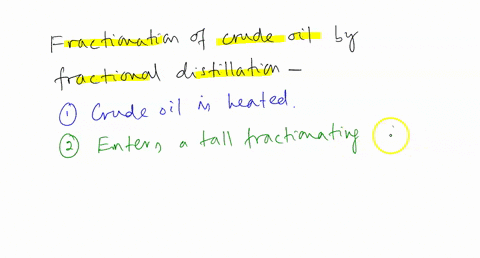 Fractionation of crude oil by
fractional distillation —
① Crude oil is heated.
② Enters a tall fractionating